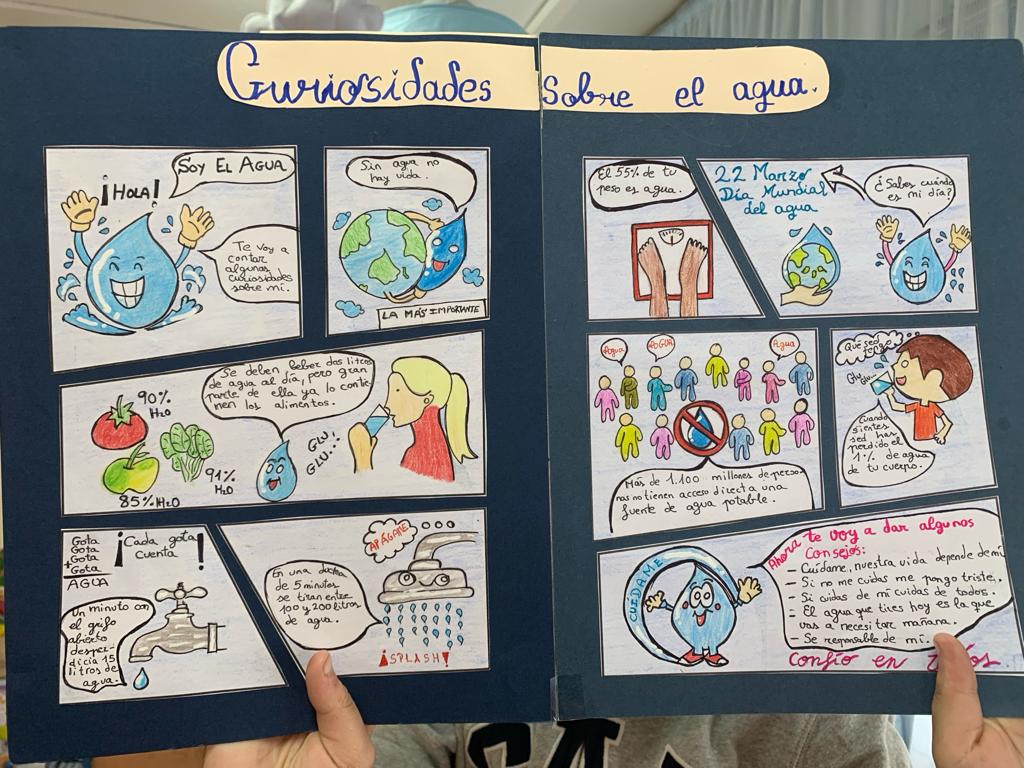 Curiosidades sobre el agua.
¡HOLA!
SOY EL AGUA
Te voy a
contar
algunas
curiosidades
sobre mí.
Sin agua no
hay vida.
LA MÁS IMPORTANTE
90%
H₂O
91%
H₂O
85% H₂O
Se deben beber dos litros
de agua al día, pero gran
parte de ella ya lo contie-
nen los alimentos.
GLU,
GLU..!
Gota
Gota
+Gota
Gota
AGUA
¡Cada gota
cuenta!
Un minuto con
el grifo
abierto
desper-
dicia 15
litros de
agua.
APÁGAME
En una ducha
de 5 minutos
se tiran entre
100 y 200 litros
de agua.
¡SPLASH!
El 55% de tu
peso es agua.
22 Marzo
Día Mundial
del agua
¿Sabes cuándo
es mi día?
Agua
AGUA
Agua
Más de 1.100 millones de perso-
nas no tienen acceso directo a una
fuente de agua potable.
Qué sed
Glu
Glu...
Cuando
sientes
sed has
perdido el
1% de agua
de tu cuerpo.
CUIDAME
Ahora te voy a dar algunos
Consejos:
- Cuídame, nuestra vida depende de mí
- Si no me cuidas me pongo triste.
- Si cuidas de mí cuidas de todos.
- El agua que tires hoy es la que
vas a necesitar mañana.
- Se responsable de mí.
Confío en